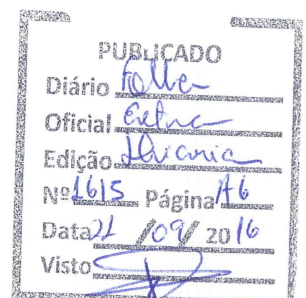 PUBLICADO
Diário Folha
Oficial Extra
Edição
Nº 1615 Página A6
Data 21 /09/ 2016
Visto